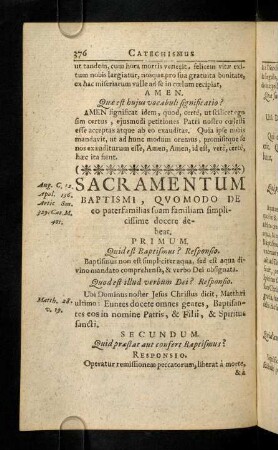 376 CATECHISMUS
ut tandem, cum hora mortis venerit, felicem vitæ exi-
tum nobis largiatur, nosque pro sua gratuita bonitate,
ex hac miseriarum valle ad se in cœlum recipiat,
AMEN.
Quæ est hujus vocabuli significatio?
AMEN significat idem, quod, certè, ut scilicet ego
sim certus, ejusmodi petitiones Patri nostro cœlesti
esse acceptas atque ab eo exauditas. Quia ipse nobis
mandavit, ut ad hunc modum oremus, promisitque se
nos exauditurum esse, Amen, Amen, id est, verè, certè,
hæc ita fient.
SACRAMENTUM
BAPTISMI, QVOMODO DE
eo paterfamilias suam familiam simpli-
cissime docere de-
beat.
PRIMUM.
Quid est Baptismus? Responsio.
Baptismus non est simpliciter aqua, sed est aqua di-
vino mandato comprehensa, & verbo Dei obsignata.
Quod est illud verbum Dei? Responsio.
Ubi Dominus noster Jesus Christus dicit, Matthæi
ultimo: Euntes docete omnes gentes, Baptisan-
tes eos in nomine Patris, & Filii, & Spiritus
sancti.
SECUNDUM.
Quid præstat aut confert Baptismus?
RESPONSIO.
Operatur remissionem peccatorum, liberat à morte,
&à
Aug. C. 12.
Apol. 156.
Matth. ult.
v. 19.